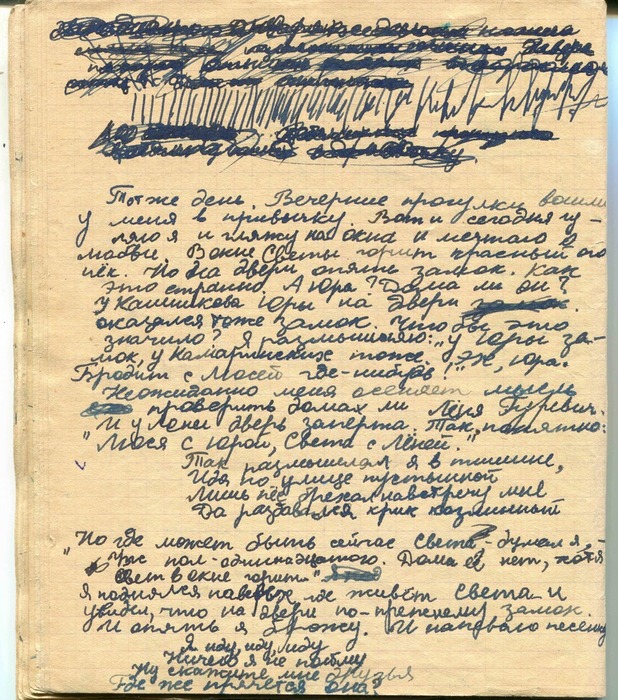 Тот же день. Вечерние прогулки вошли
у меня в привычку. Вот и сегодня гу-
ляю я и гляжу на окна и мечтаю о
любви. В окне Светы горит красный ого
нёк. Но на двери опять замок. Как
это странно. А Юра? Дома ли он?
У Камшикова Юры на двери замок
оказался тоже замок. Что бы это
значило? Я размышляю: „у Юры за-
мок, у Камарлинских тоже." Эх, Юра.
Бродит с Люсей где-нибудь!
Неожиданно меня осеняет мысль
проверить домах ли Лёня Гуревич.
И у Лени дверь заперта. Так, понятно:
"Люся с Юрой, Света с Лёней."
Так размышлял я в тишине,
Идя по улице пустынной
Лишь пёс брехал навстречу мне
Да раздавался крик козлинный
"Но где может быть сейчас Света - думал я, -
Час пол-одинадцатого. Дома её нет, хотя
свет в окне горит."
Я поднялся наверх где живёт Света и
увидел, что на двери по-прежнему замок.
И опять я брожу. И напеваю песенку
Я иду, иду, иду
Ничего я не пойму
Ну скажите мне друзья
Где же прячется она?